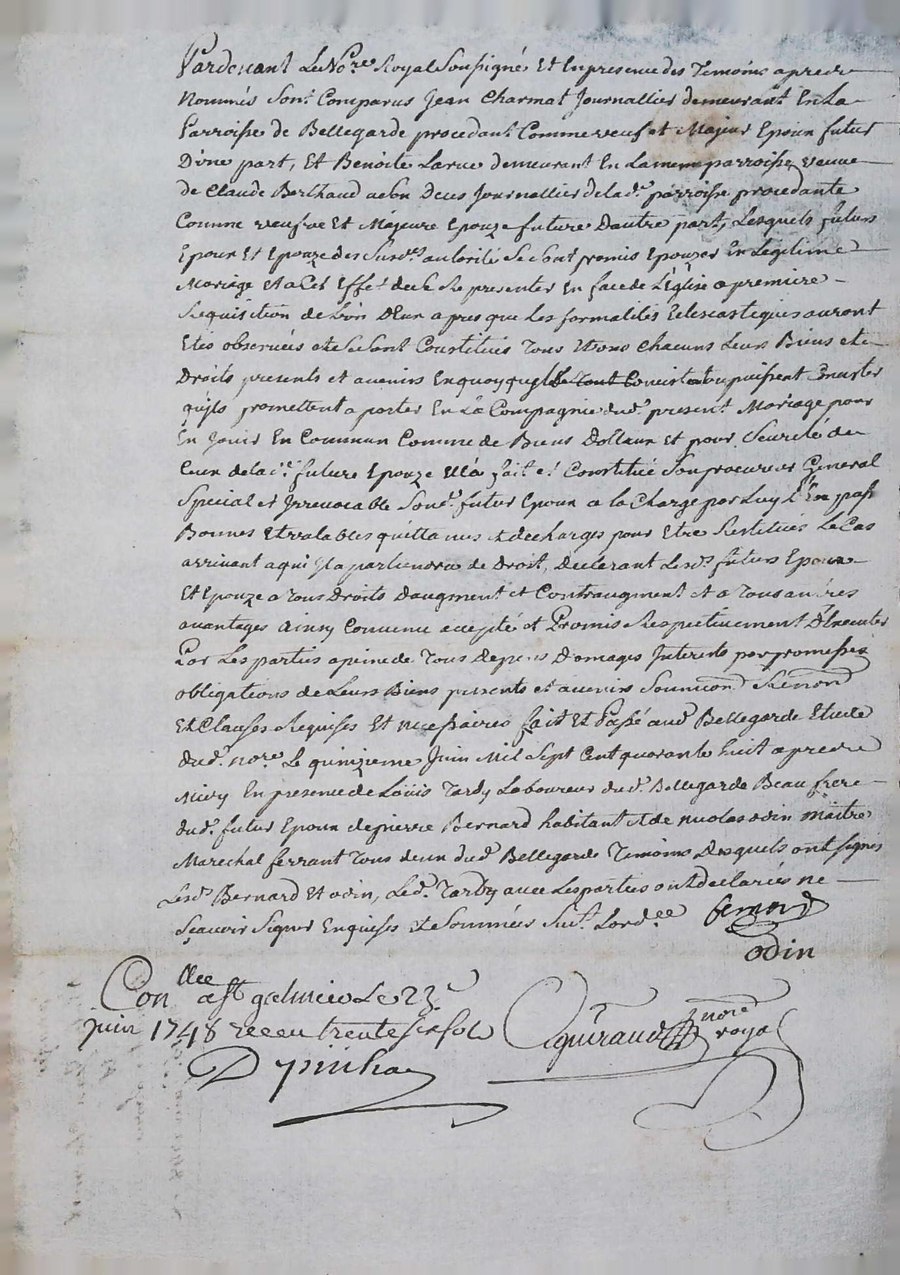 Pardevant Le No.re Royal Soussigné Et En presence des Temoins apres
Nommés Sont Comparus Jean Charmat Journallier demeurant En La
Parroisse de Bellegarde procedant Comme veuf et Majeur Epoux futur
D'une part, Et Benoite Larue demeurant En La meme parroisse, veuve
de Claude Berthaud Journallier de lad.e parroisse procedante
Comme veufve Et Majeure Epouze future Dautre part, Lesquels futurs
Epoux Et Epouze des Susd.es autorités Se Sont promis Epouzer En Legitime
Mariage Et a Cet Effet de Se Representer En face de L'Eglise a premiere
Requisition de L'un D'Eux apres que Les formalités Eclesiastiques auront
Etés observées et Se Sont Constitués Tous Chacuns Leurs Biens et
Droits presents et avenirs En quoy quyls puissent Consister
qu'jls promettent aporter En La Compagnie dud.t present Mariage pour
En Jouir En Commun Comme de Biens Dottaux Et pour Seureté de
Ceux de lad.e future Epouze Ella fait et Constitué Son procureur General
Special et Jrrevocable Sond.t futur Epoux a la Charge par Luy D'En pass
Bonnes Et valables quittances et decharges pour Etre Restitués Le Cas
arrivant a qui Jl apartiendra de Droit, Declarant Lesd.s futurs Epoux
Et Epouze a Tous Droits Daugment et Contraugment et a Tous autres
avantages ainsy Convenu accepté et Promis Respectivement D'Executer
Par Les parties apeine de Tous Depens Domages Interests par promesses
obligations de Leurs Biens presents et avenirs Renond
Et Clauses Requises Et necessaires fait Et Passé aud.t Bellegarde Etude
dud.t no.re Le quinzieme Juin Mil Sept Cent quarante huit apres
Midy En presence de Loüis Tardy Laboureur dud.t Bellegarde Beau frere
dud.t futur Epoux de pierre Bernard habitant et de nicolas odin Maitre
Marechal ferrant Tous deux dud.t Bellegarde Temoins Desquels ont signés
Lesd.s Bernard Et odin, Led.t Tardy avec Les parties ont declarés ne
Sçavoir Signer Enquises et Sommées Suiv.t Lord.ce bernard
odin
Con.llee a St galmier Le 23.e
juin 1748 receu trente six sols
guiraud nore royal